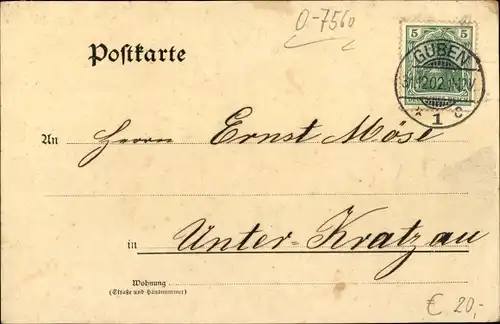 O-7560
Postkarte
5 5
GUBEN
* 1 c
An Herrn Ernst Möse
in Unter-Kratzau
Wohnung
(Straße und Hausnummer)
€ 20,-